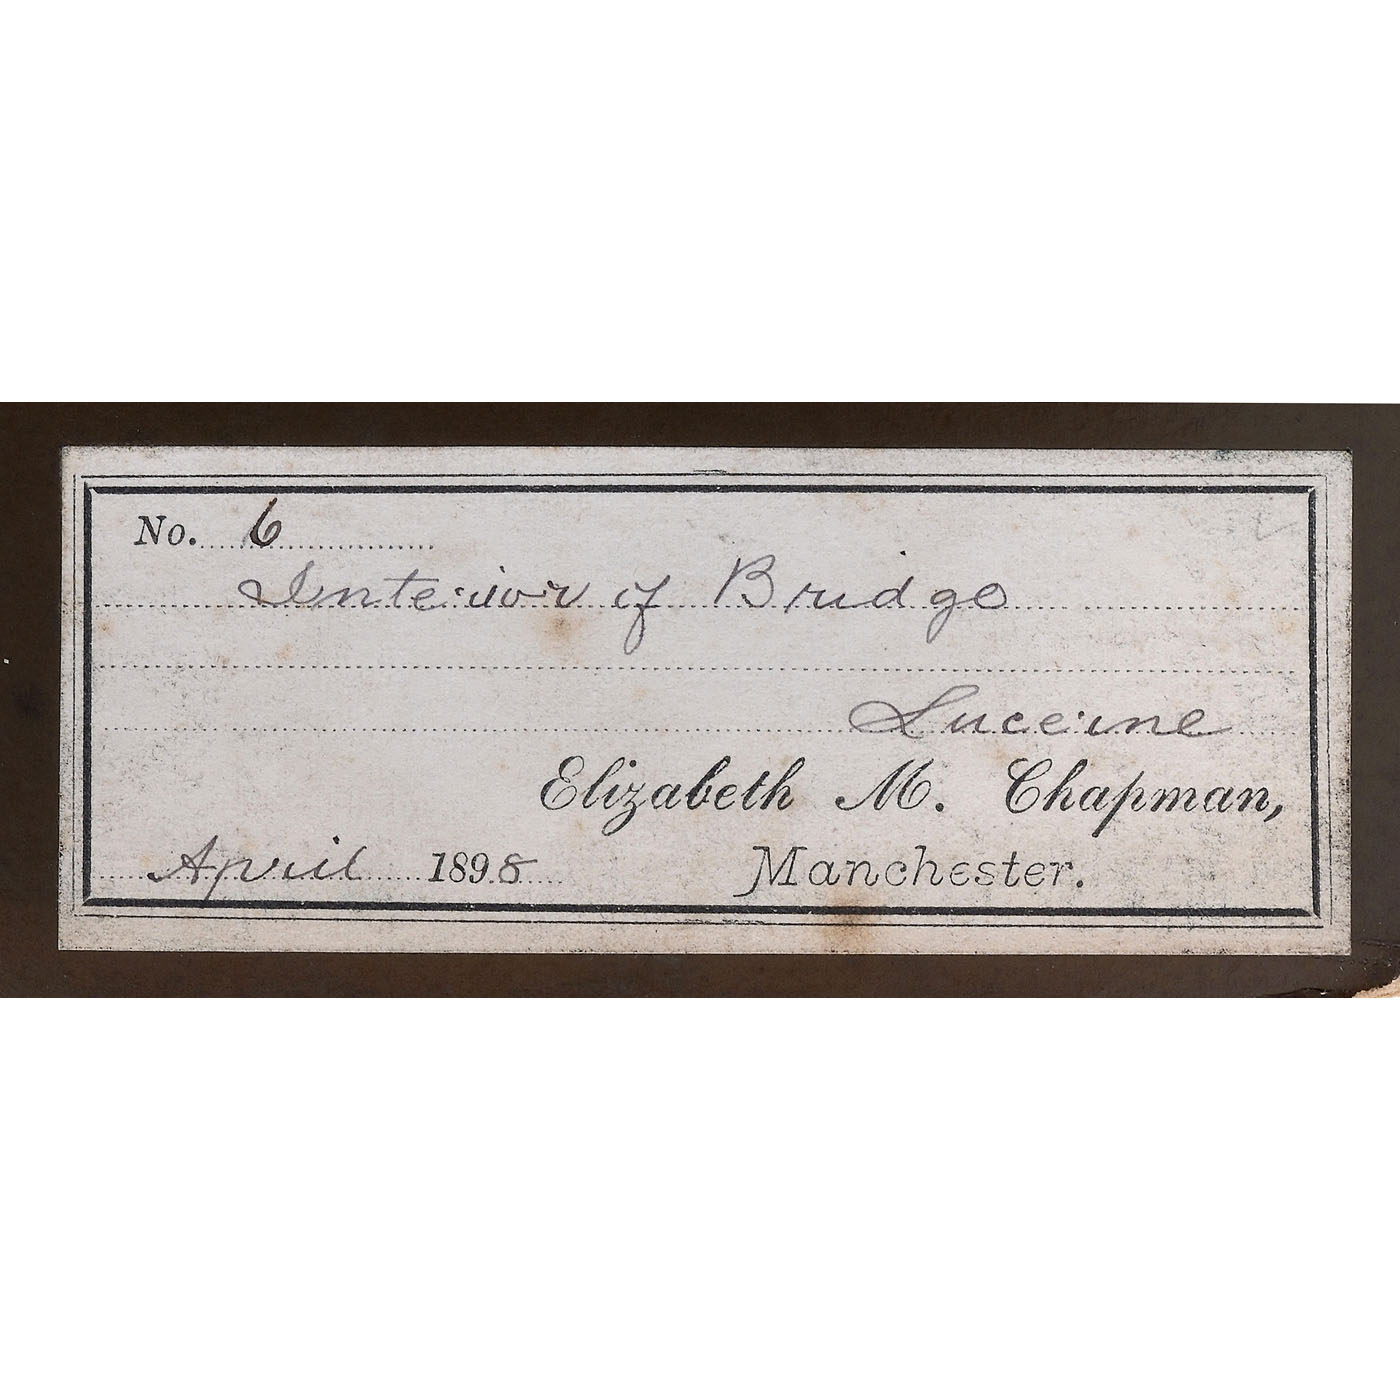 No. 6
Interior of Bridge
Lucerne
Elizabeth M. Chapman,
April 1898
Manchester.